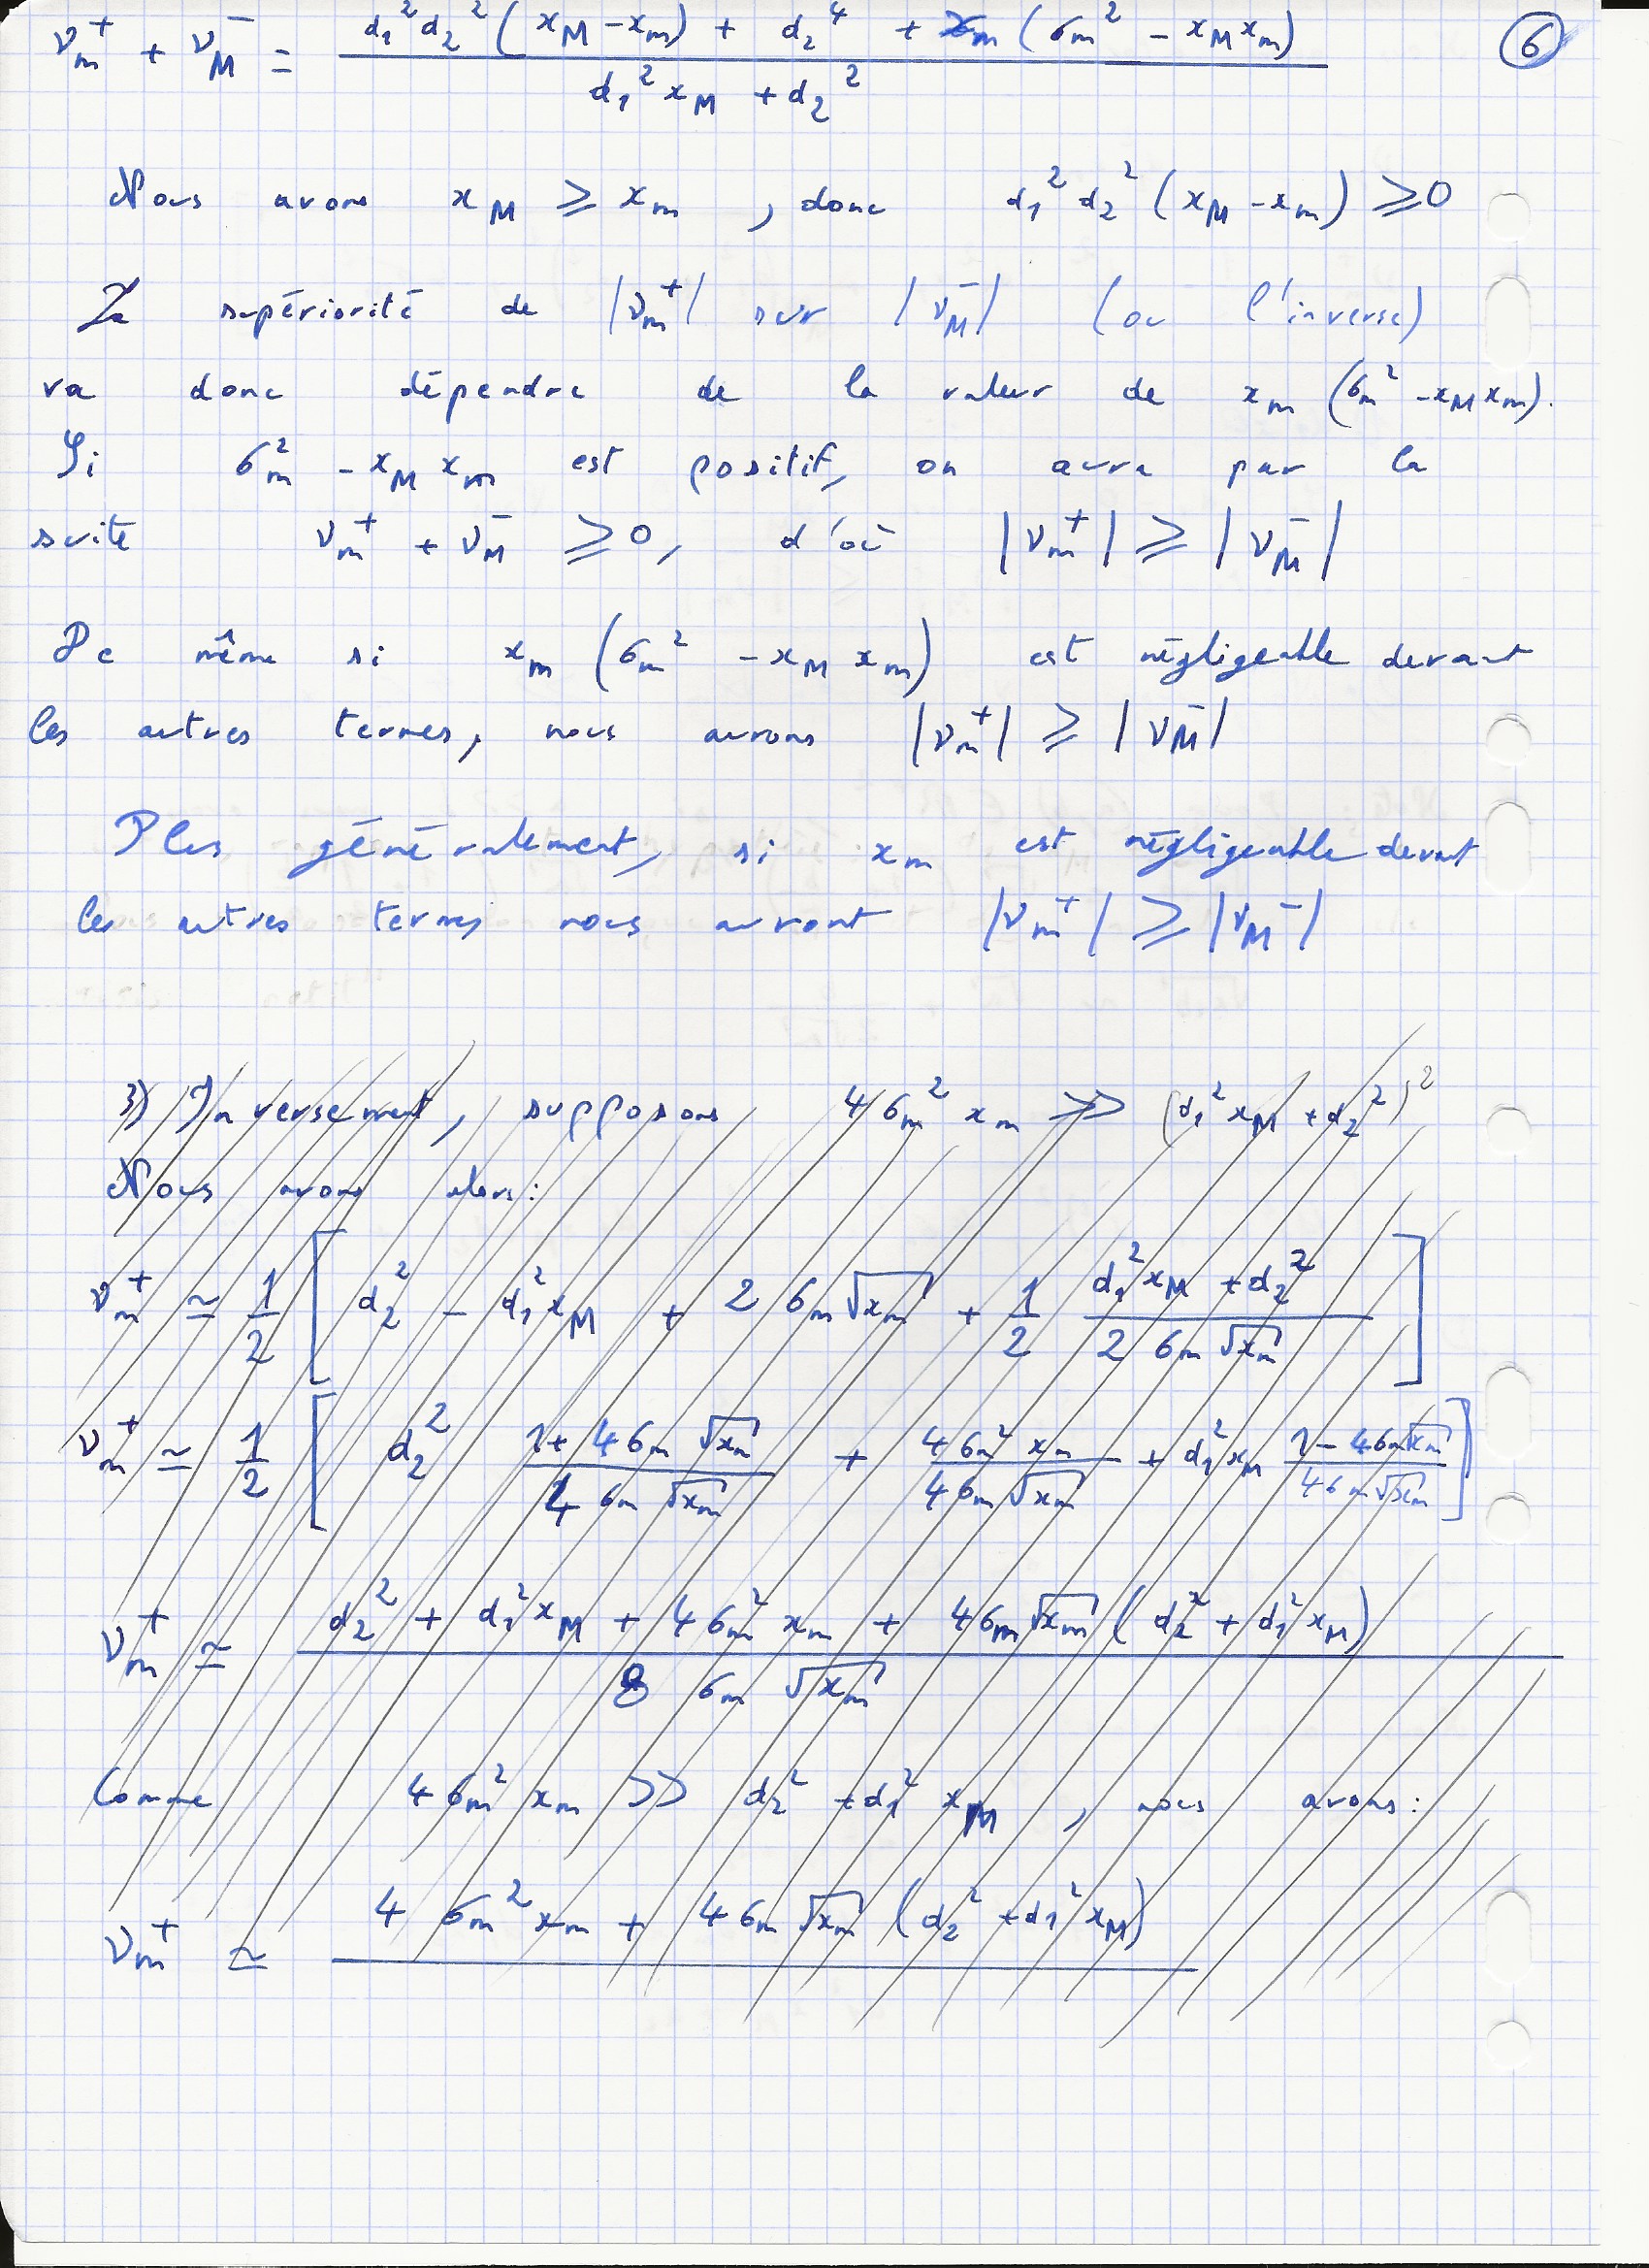 ν_m^+ + ν_M^- = (d_1^2 d_2^2 (x_M - x_m) + d_2^4 + x_m (σ_m^2 - x_M x_m)) / (d_1^2 x_M + d_2^2) ⑥
Nous avons x_M ⩾ x_m , donc d_1^2 d_2^2 (x_M - x_m) ⩾ 0
La supériorité de |ν_m^+| sur |ν_M^-| (ou l'inverse)
va donc dépendre de la valeur de x_m (σ_m^2 - x_M x_m).
Si σ_m^2 - x_M x_m est positif, on aura par la
suite ν_m^+ + ν_M^- ⩾ 0, d'où |ν_m^+| ⩾ |ν_M^-|
De même si x_m (σ_m^2 - x_M x_m) est négligeable devant
les autres termes, nous aurons |ν_m^+| ⩾ |ν_M^-|
Plus généralement, si x_m est négligeable devant
les autres termes nous auront |ν_m^+| ⩾ |ν_M^-|
3) Inversement, supposons 4 σ_m^2 x_m >> (d_1^2 x_M + d_2^2)^2
Nous avons alors :
ν_m^+ ≃ 1/2 [ d_2^2 - d_1^2 x_M + 2 σ_m √x_m + 1/2 (d_1^2 x_M + d_2^2) / (2 σ_m √x_m) ]
ν_m^+ ≃ 1/2 [ d_2^2 (1 + 4 σ_m √x_m) / (4 σ_m √x_m) + (4 σ_m^2 x_m) / (4 σ_m √x_m) + d_1^2 x_M (1 - 4 σ_m √x_m) / (4 σ_m √x_m) ]
ν_m^+ ≃ (d_2^2 + d_1^2 x_M + 4 σ_m^2 x_m + 4 σ_m √x_m (d_2^2 + d_1^2 x_M)) / (8 σ_m √x_m)
Comme 4 σ_m^2 x_m >> d_2^2 + d_1^2 x_M , nous avons :
ν_m^+ ≃ 4 σ_m^2 x_m + 4 σ_m √x_m (d_2^2 + d_1^2 x_M)